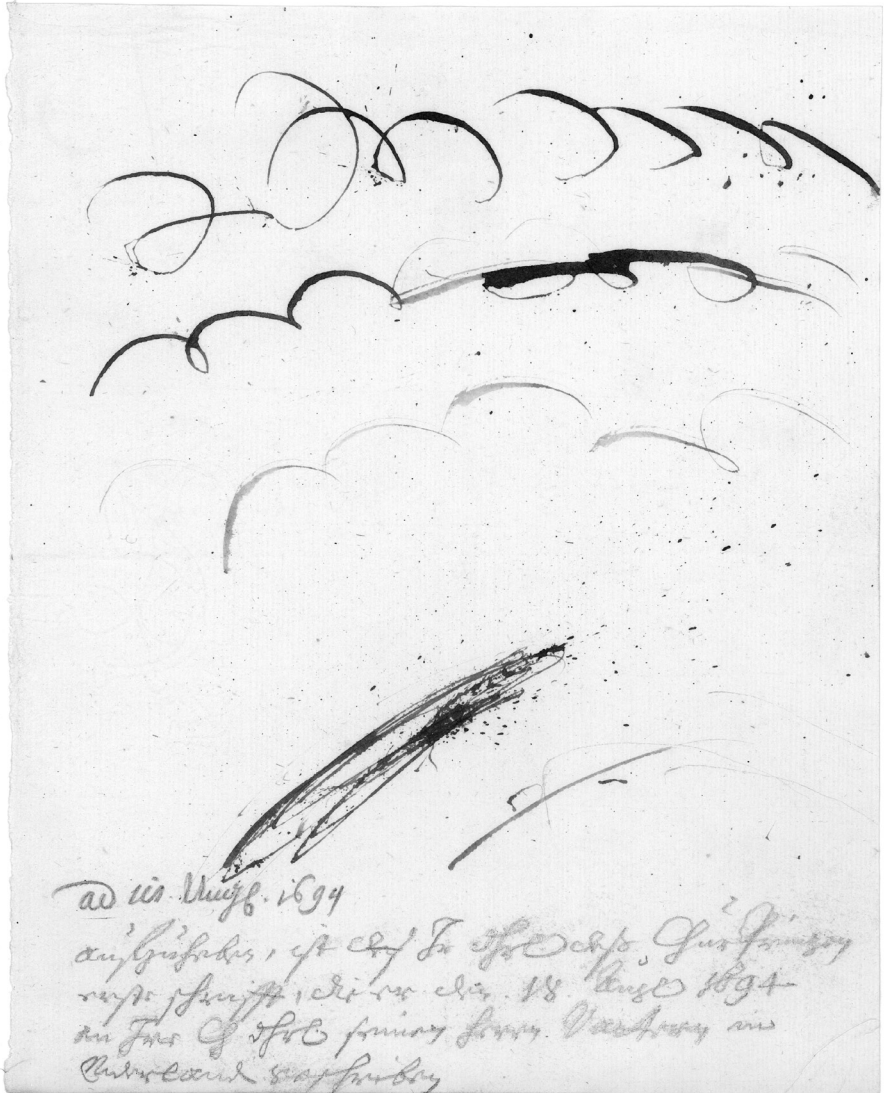 ad 111 Aug. 1694
aufzuheben, ist deß Jr dhrl deß Churprinzen
erste schrifft, die er den 18. Aug 1694
an Jre Ch dhrl seinen herrn Vattern in
Niderland geschriben